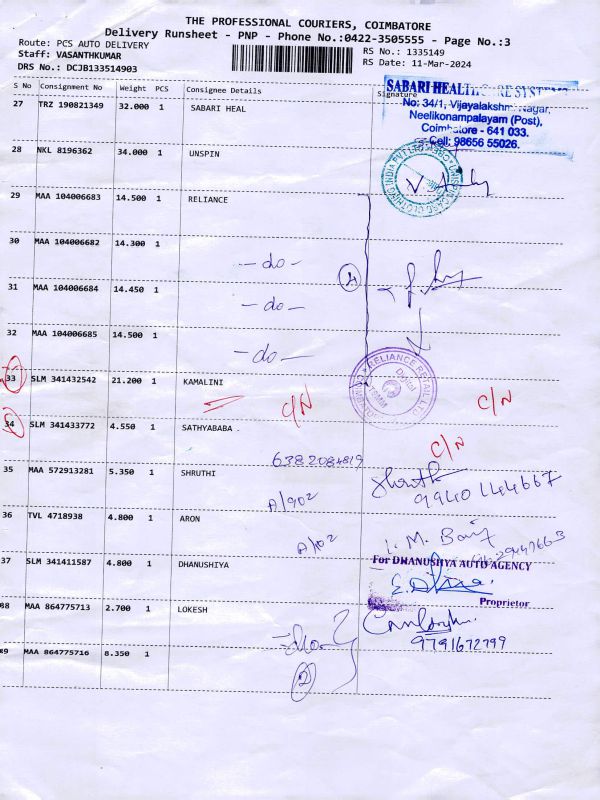 THE PROFESSIONAL COURIERS, COIMBATORE
Delivery Runsheet - PNP - Phone No.:0422-3505555 - Page No.:3
Route: PCS AUTO DELIVERY
RS No.: 1335149
Staff: VASANTHKUMAR
RS Date: 11-Mar-2024
DRS No.: DCJB133514903
S No Consignment No Weight PCS Consignee Details Signature
27 TRZ 190821349 32.000 1 SABARI HEAL
SABARI HEALTHCARE SYSTEMS
No: 34/1, Vijayalakshmi Nagar,
Neelikonampalayam (Post),
Coimbatore - 641 033.
Cell: 98656 55026.
28 NKL 8196362 34.000 1 UNSPIN
29 MAA 104006683 14.500 1 RELIANCE
30 MAA 104006682 14.300 1
- do -
4
31 MAA 104006684 14.450 1
- do -
32 MAA 104006685 14.500 1
- do -
RELIANCE RETAIL LTD
Digital
33 SLM 341432542 21.200 1 KAMALINI
C/N C/N
34 SLM 341433772 4.550 1 SATHYABABA
C/N
6382084819
35 MAA 572913281 5.350 1 SHRUTHI
A/902
9940144667
36 TVL 4718938 4.800 1 ARON
A/102
37 SLM 341411587 4.800 1 DHANUSHIYA
For DHANUSHYA AUTO AGENCY
Proprietor
38 MAA 864775713 2.700 1 LOKESH
9791672799
39 MAA 864775716 8.350 1
- do -
2